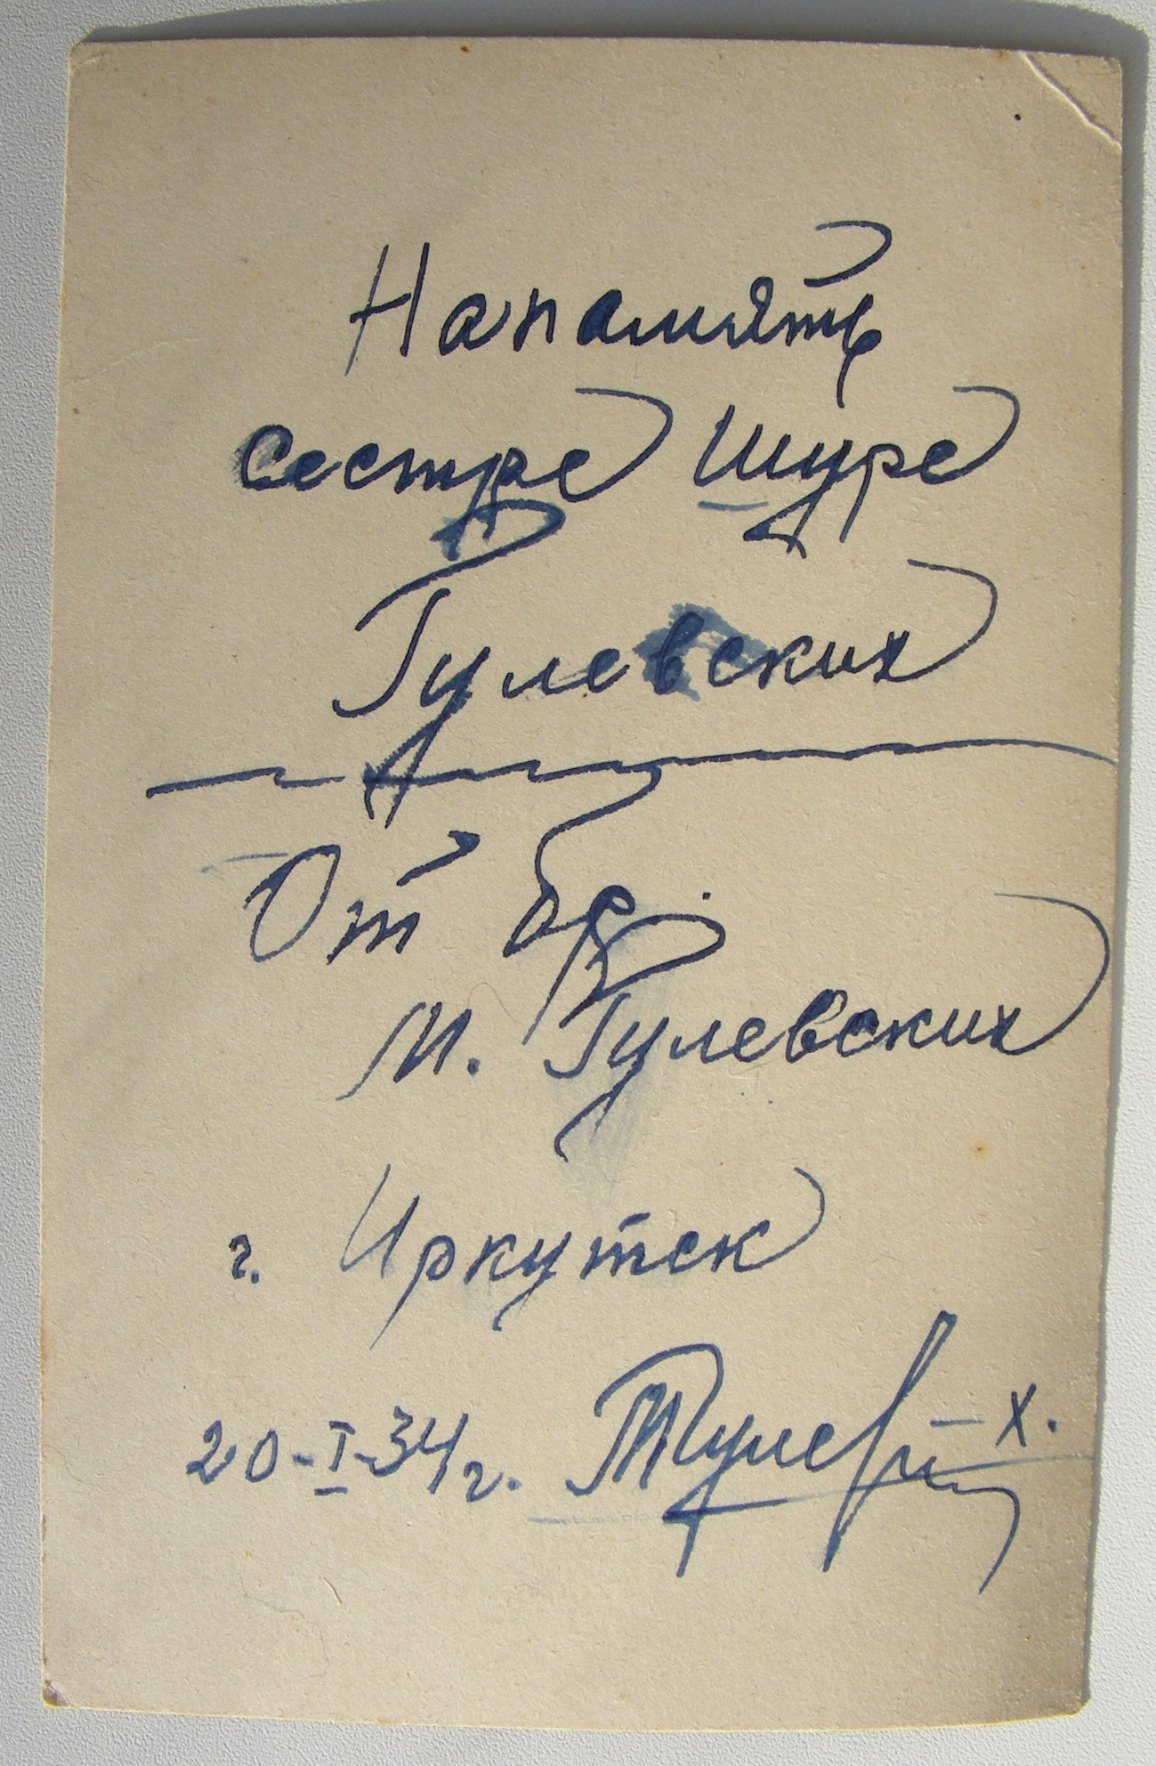 На память
сестре Шуре
Гулевских
От бр.
М. Гулевских
г. Иркутск
20-I-34 г.